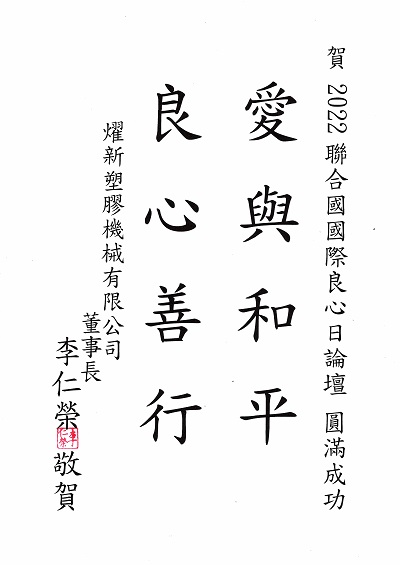 賀 2022 聯合國國際良心日論壇 圓滿成功
愛與和平
良心善行
燿新塑膠機械有限公司
董事長
李仁榮敬賀
李仁榮